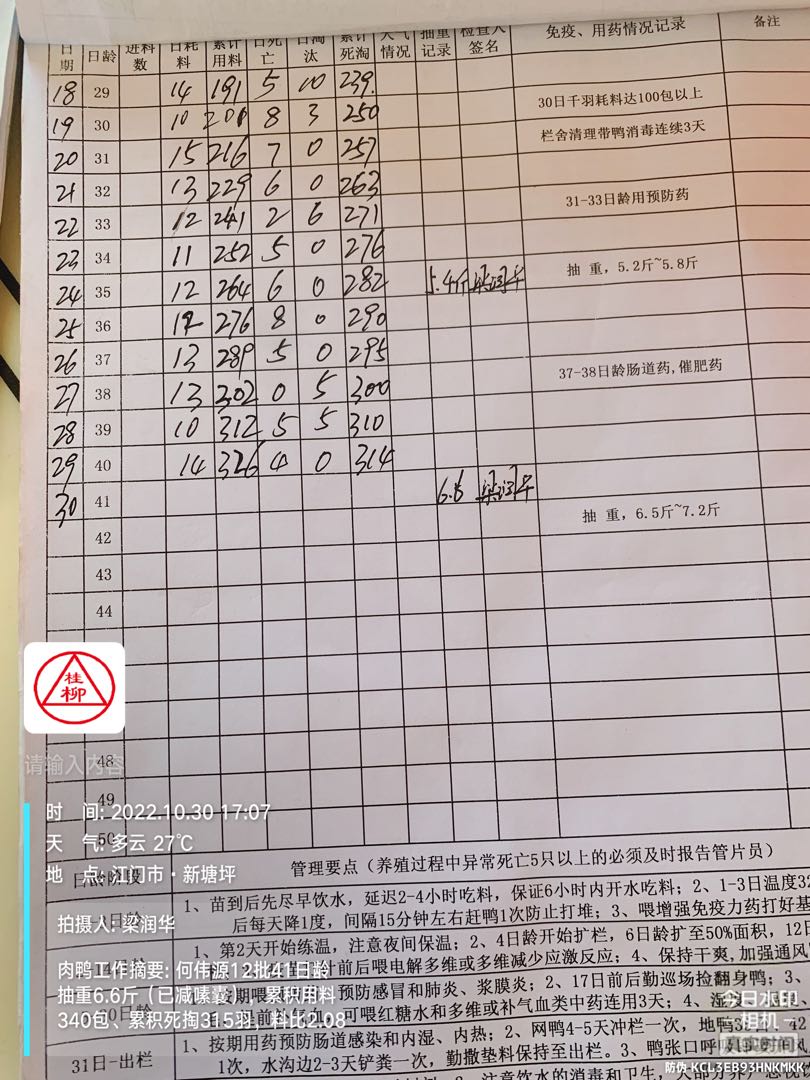 日期 日龄 进料数 日耗料 累计用料 日死亡 日淘汰 累计死淘 天气情况 抽重记录 检查人签名 免疫、用药情况记录 备注
18 29 14 191 5 10 239
30日千羽耗料达100包以上
19 30 10 201 8 3 250
栏舍清理带鸭消毒连续3天
20 31 15 216 7 0 257
21 32 13 229 6 0 263
31-33日龄用预防药
22 33 12 241 2 6 271
23 34 11 252 5 0 276
抽 重，5.2斤~5.8斤
24 35 12 264 6 0 282 5.4斤 梁润华
25 36 12 276 8 0 290
26 37 13 289 5 0 295
37-38日龄肠道药,催肥药
27 38 13 302 0 5 300
28 39 10 312 5 5 310
29 40 14 326 4 0 314
30 41 6.6 梁润华
抽 重，6.5斤~7.2斤
42
43
44
桂柳
48
请输入内容
49
50
时 间: 2022.10.30 17:07
天 气: 多云 27℃
地 点: 江门市·新塘坪
日龄阶段 管理要点（养殖过程中异常死亡5只以上的必须及时报告管片员）
1、苗到后先尽早饮水，延迟2-4小时吃料，保证6小时内开水吃料；2、1-3日温度32
后每天降1度，间隔15分钟左右赶鸭1次防止打堆；3、喂增强免疫力药打好基
拍摄人: 梁润华
1、第2天开始练温，注意夜间保温；2、4日龄开始扩栏，6日龄扩至50%面积，12日
前后喂电解多维或多维减少应激反应；4、保持干爽,加强通风
肉鸭工作摘要: 何伟源12批41日龄
抽重6.6斤（已减嗉囊）、累积用料
340包、累积死掏315羽，料比2.08
预防感冒和肺炎、浆膜炎；2、17日前后勤巡场捡翻身鸭；3、
可喂红糖水和多维或补气血类中药连用3天；4、
31日-出栏 1、按期用药预防肠道感染和内湿、内热；2、网鸭4-5天冲栏一次，地鸭
1次，水沟边2-3天铲粪一次，勤撒垫料保持至出栏。3、鸭张口呼
注意饮水的消毒和卫生
今日水印
相机
真实时间
防伪 KCL3EB93HNKMKK